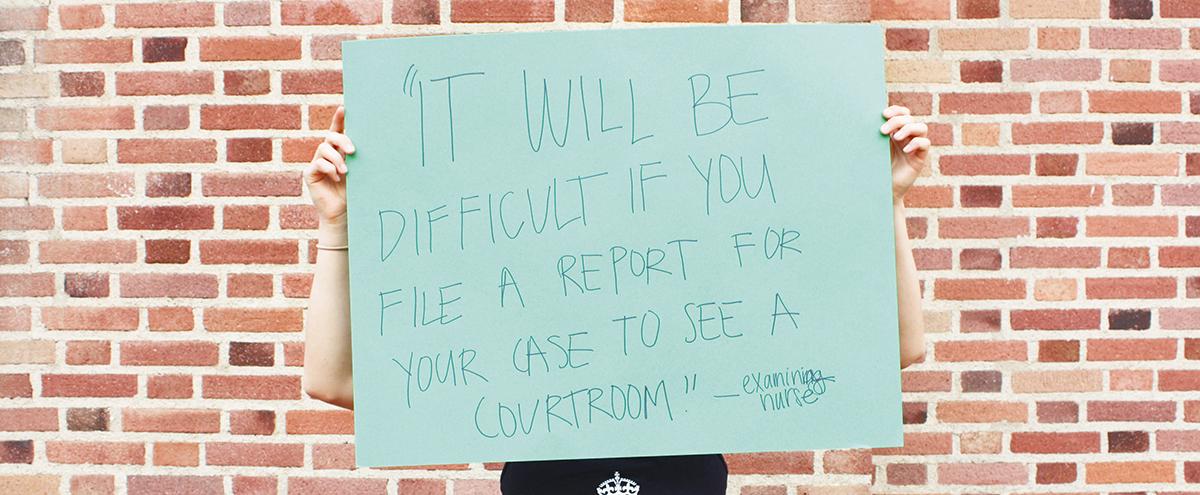 "IT WILL BE
DIFFICULT IF YOU
FILE A REPORT FOR
YOUR CASE TO SEE A
COURTROOM." — examining
nurse